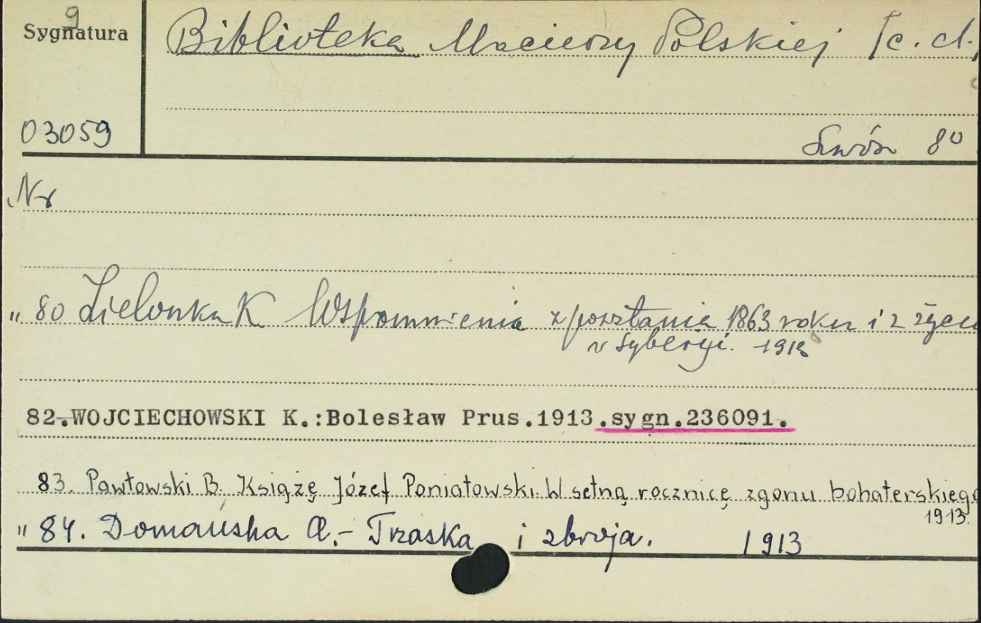 9
Sygnatura
Biblioteka Macierzy Polskiej [c.d.
03059
Lwów 8°
Nr
" 80 Zielonka K Wspomnienia z powstania 1863 roku i z życia
w Syberyi. 1913
82.WOJCIECHOWSKI K.:Bolesław Prus.1913.sygn.236091.
83. Pawłowski B. Książę Józef Poniatowski. W setną rocznicę zgonu bohaterskiego
1913.
" 84. Domańska A.- Trzaska i zbroja. 1913